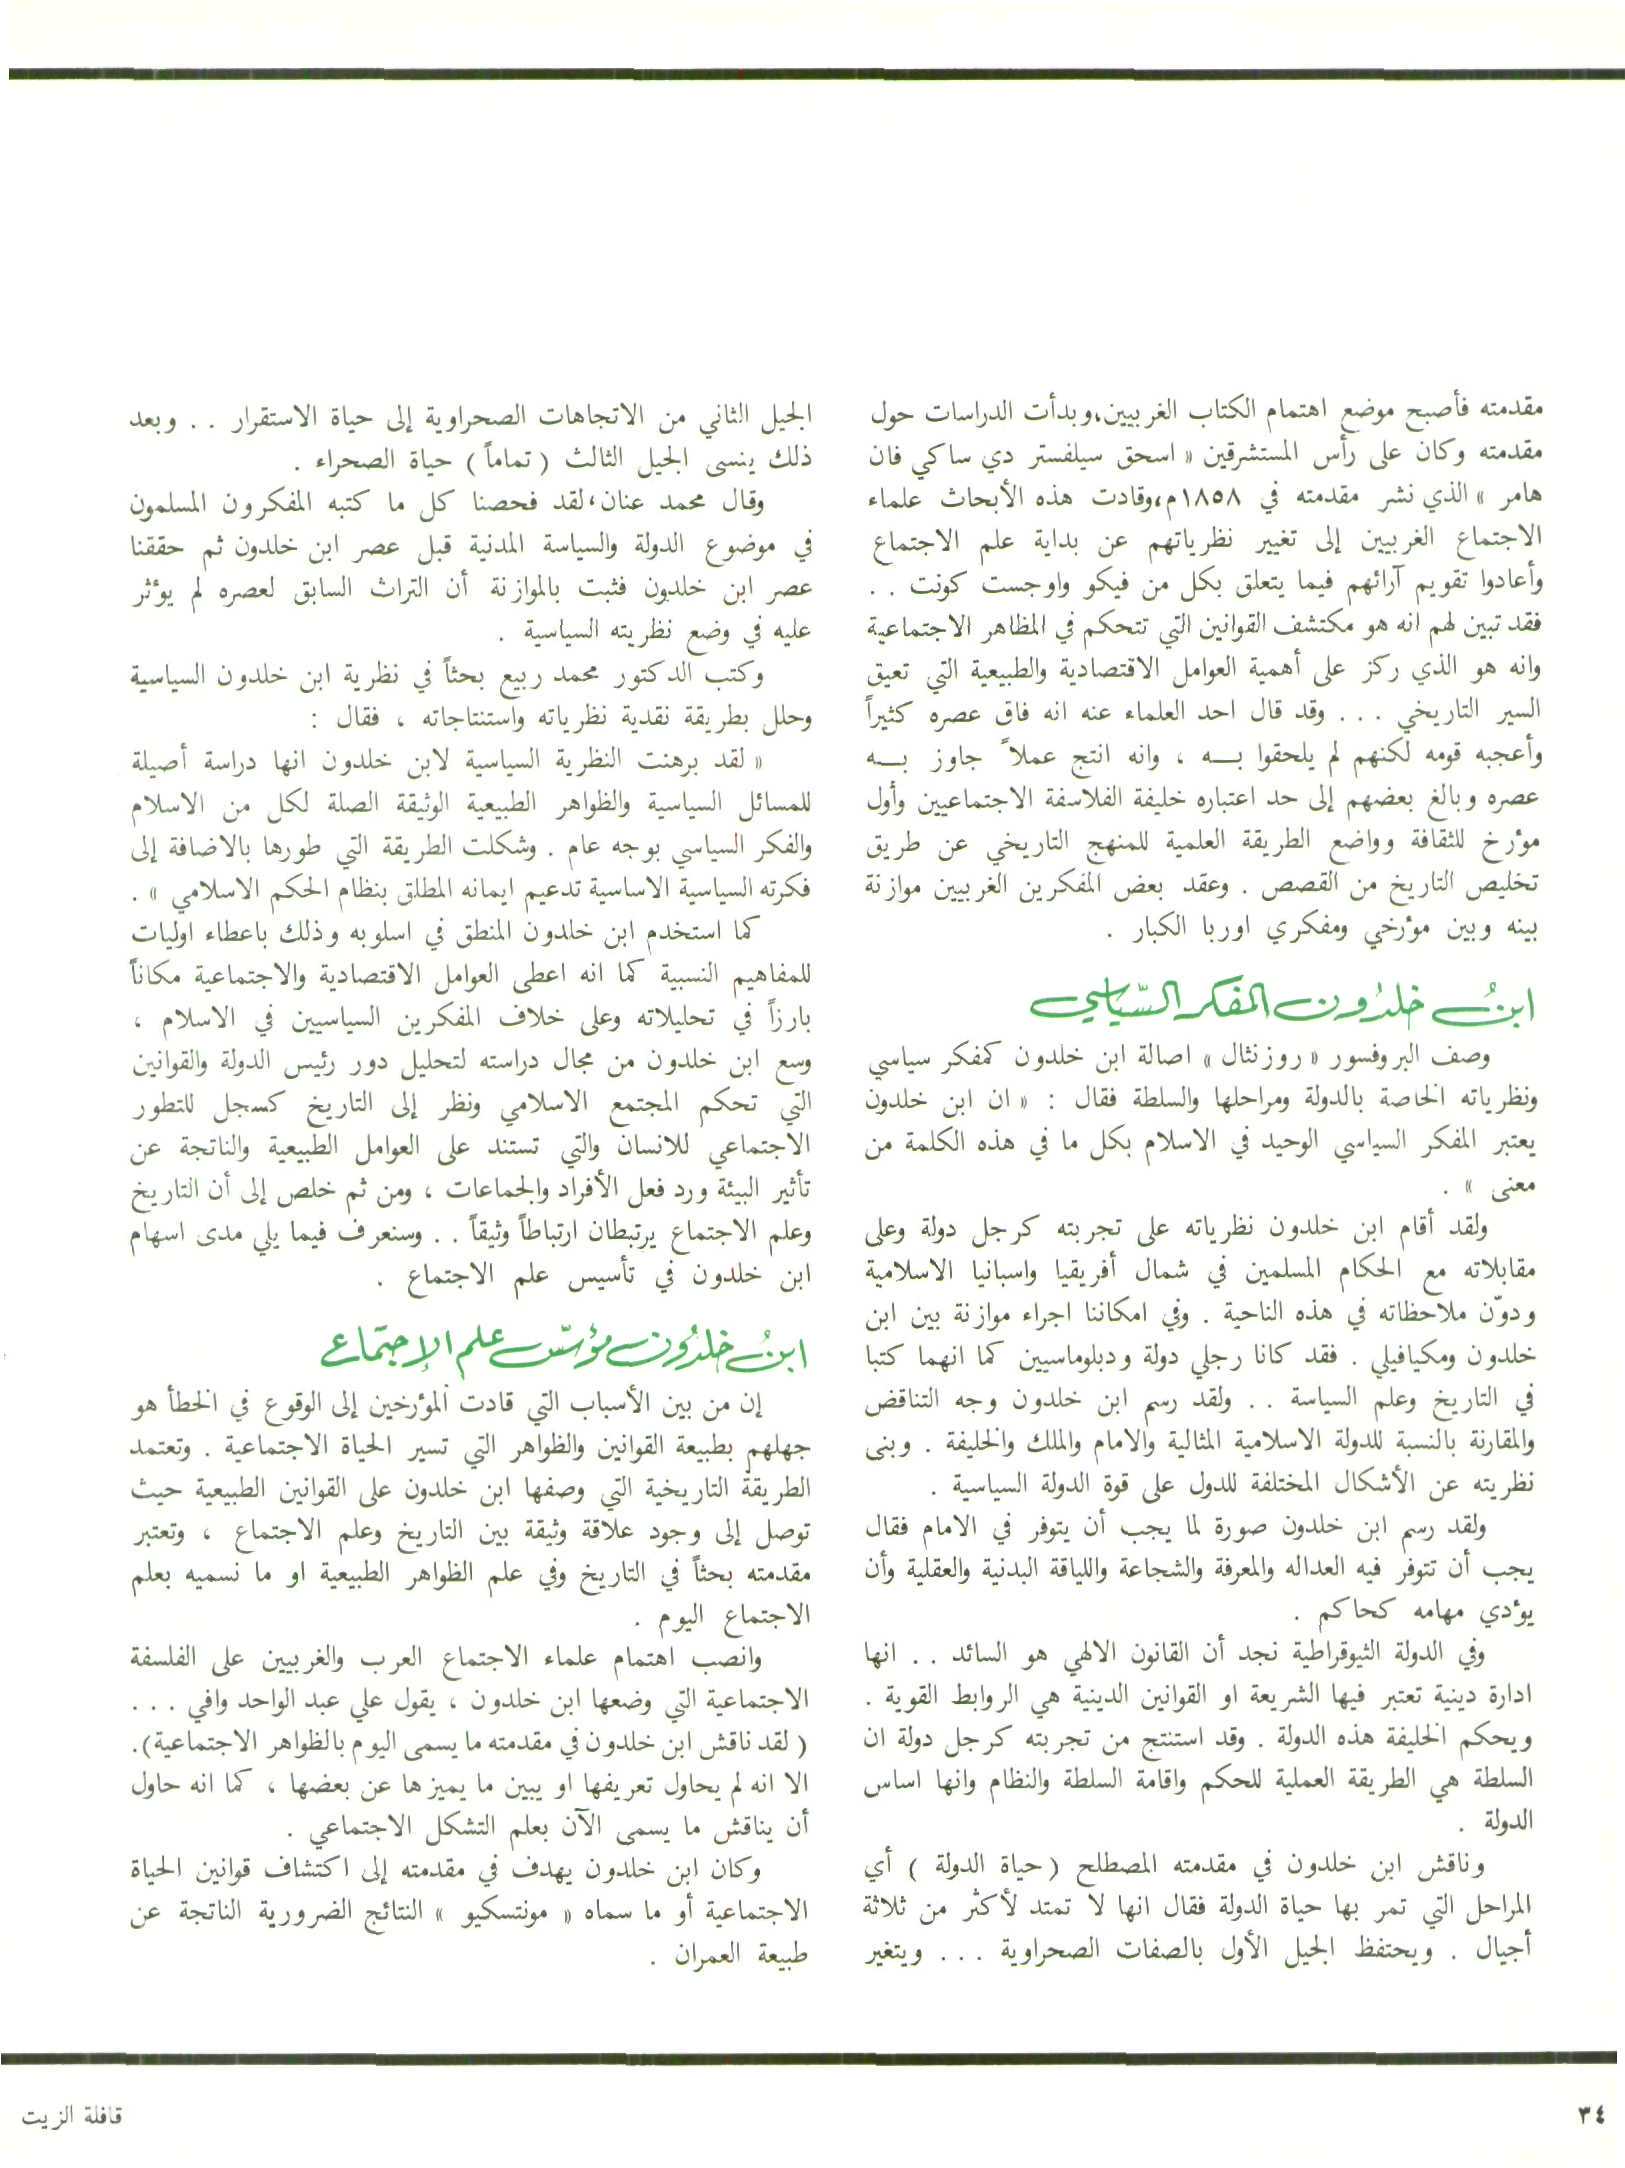 مقدمته فأصبح موضع اهتمام الكتاب الغربيين،وبدأت الدراسات حول
مقدمته وكان على رأس المستشرقين « اسحق سيلفستر دي ساكي فان
هامر » الذي نشر مقدمته في ١٨٥٨م،وقادت هذه الأبحاث علماء
الاجتماع الغربيين إلى تغيير نظرياتهم عن بداية علم الاجتماع
وأعادوا تقويم آرائهم فيما يتعلق بكل من فيكو واوجست كونت . .
فقد تبين لهم انه هو مكتشف القوانين التي تتحكم في المظاهر الاجتماعية
وانه هو الذي ركز على أهمية العوامل الاقتصادية والطبيعية التي تعيق
السير التاريخي . . . وقد قال احد العلماء عنه انه فاق عصره كثيراً
وأعجبه قومه لكنهم لم يلحقوا بــه ، وانه انتج عملاً جاوز بــه
عصره وبالغ بعضهم إلى حد اعتباره خليفة الفلاسفة الاجتماعيين وأول
مؤرخ للثقافة وواضع الطريقة العلمية للمنهج التاريخي عن طريق
تخليص التاريخ من القصص . وعقد بعض المفكرين الغربيين موازنة
بينه وبين مؤرخي ومفكري اوربا الكبار .
ابنُ خلدُون المفكر السّياسي
وصف البروفسور « روزنثال » اصالة ابن خلدون كمفكر سياسي
ونظرياته الخاصة بالدولة ومراحلها والسلطة فقال : « ان ابن خلدون
يعتبر المفكر السياسي الوحيد في الاسلام بكل ما في هذه الكلمة من
معنى » .
ولقد أقام ابن خلدون نظرياته على تجربته كرجل دولة وعلى
مقابلاته مع الحكام المسلمين في شمال أفريقيا واسبانيا الاسلامية
ودوّن ملاحظاته في هذه الناحية . وفي امكاننا اجراء موازنة بين ابن
خلدون ومكيافيلي . فقد كانا رجلي دولة ودبلوماسيين كما انهما كتبا
في التاريخ وعلم السياسة . . ولقد رسم ابن خلدون وجه التناقض
والمقارنة بالنسبة للدولة الاسلامية المثالية والامام والملك والخليفة . وبنى
نظريته عن الأشكال المختلفة للدول على قوة الدولة السياسية .
ولقد رسم ابن خلدون صورة لما يجب أن يتوفر في الامام فقال
يجب أن تتوفر فيه العداله والمعرفة والشجاعة واللياقة البدنية والعقلية وأن
يؤدي مهامه كحاكم .
وفي الدولة الثيوقراطية نجد أن القانون الالهي هو السائد . . انها
ادارة دينية تعتبر فيها الشريعة او القوانين الدينية هي الروابط القوية .
ويحكم الخليفة هذه الدولة . وقد استنتج من تجربته كرجل دولة ان
السلطة هي الطريقة العملية للحكم واقامة السلطة والنظام وانها اساس
الدولة .
وناقش ابن خلدون في مقدمته المصطلح ( حياة الدولة ) أي
المراحل التي تمر بها حياة الدولة فقال انها لا تمتد لأكثر من ثلاثة
أجيال . ويحتفظ الجيل الأول بالصفات الصحراوية . . . ويتغير
الجيل الثاني من الاتجاهات الصحراوية إلى حياة الاستقرار . . وبعد
ذلك ينسى الجيل الثالث ( تماماً ) حياة الصحراء .
وقال محمد عنان،لقد فحصنا كل ما كتبه المفكرون المسلمون
في موضوع الدولة والسياسة المدنية قبل عصر ابن خلدون ثم حققنا
عصر ابن خلدون فثبت بالموازنة أن التراث السابق لعصره لم يؤثر
عليه في وضع نظريته السياسية .
وكتب الدكتور محمد ربيع بحثاً في نظرية ابن خلدون السياسية
وحلل بطريقة نقدية نظرياته واستنتاجاته ، فقال :
« لقد برهنت النظرية السياسية لابن خلدون انها دراسة أصيلة
للمسائل السياسية والظواهر الطبيعية الوثيقة الصلة لكل من الاسلام
والفكر السياسي بوجه عام . وشكلت الطريقة التي طورها بالاضافة إلى
فكرته السياسية الاساسية تدعيم ايمانه المطلق بنظام الحكم الاسلامي » .
كما استخدم ابن خلدون المنطق في اسلوبه وذلك باعطاء اوليات
للمفاهيم النسبية كما انه اعطى العوامل الاقتصادية والاجتماعية مكاناً
بارزاً في تحليلاته وعلى خلاف المفكرين السياسيين في الاسلام ،
وسع ابن خلدون من مجال دراسته لتحليل دور رئيس الدولة والقوانين
التي تحكم المجتمع الاسلامي ونظر إلى التاريخ كسجل للتطور
الاجتماعي للانسان والتي تستند على العوامل الطبيعية والناتجة عن
تأثير البيئة ورد فعل الأفراد والجماعات ، ومن ثم خلص إلى أن التاريخ
وعلم الاجتماع يرتبطان ارتباطاً وثيقاً . . وسنعرف فيما يلي مدى اسهام
ابن خلدون في تأسيس علم الاجتماع .
ابنُ خلدُون مؤسّس علم الاجتماع
إن من بين الأسباب التي قادت المؤرخين إلى الوقوع في الخطأ هو
جهلهم بطبيعة القوانين والظواهر التي تسير الحياة الاجتماعية . وتعتمد
الطريقة التاريخية التي وصفها ابن خلدون على القوانين الطبيعية حيث
توصل إلى وجود علاقة وثيقة بين التاريخ وعلم الاجتماع ، وتعتبر
مقدمته بحثاً في التاريخ وفي علم الظواهر الطبيعية او ما نسميه بعلم
الاجتماع اليوم .
وانصب اهتمام علماء الاجتماع العرب والغربيين على الفلسفة
الاجتماعية التي وضعها ابن خلدون ، يقول علي عبد الواحد وافي . . .
( لقد ناقش ابن خلدون في مقدمته ما يسمى اليوم بالظواهر الاجتماعية).
الا انه لم يحاول تعريفها او يبين ما يميزها عن بعضها ، كما انه حاول
أن يناقش ما يسمى الآن بعلم التشكل الاجتماعي .
وكان ابن خلدون يهدف في مقدمته إلى اكتشاف قوانين الحياة
الاجتماعية أو ما سماه « مونتسكيو » النتائج الضرورية الناتجة عن
طبيعة العمران .
٣٤
قافلة الزيت